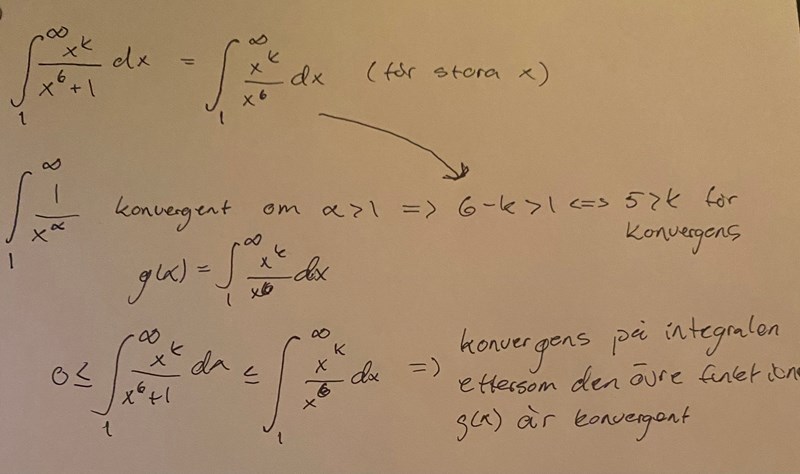 ∫₁^∞ x^k/(x^6+1) dx = ∫₁^∞ x^k/x^6 dx (för stora x)
∫₁^∞ 1/x^α konvergent om α>1 => 6-k>1 <=> 5>k för
konvergens
g(x) = ∫₁^∞ x^k/x^6 dx
0 ≤ ∫₁^∞ x^k/(x^6+1) dx ≤ ∫₁^∞ x^k/x^6 dx =>
konvergens på integralen
eftersom den övre funktione
g(x) är konvergent